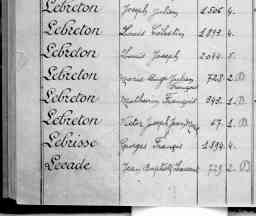 Lebreton Joseph Julien 1506 4.
Lebreton Louis Célestin 1893 4.
Lebreton Louis Joseph 2044 5.
Lebreton Marie Ange Julien François 728 2. D
Lebreton Mathurin François 343 1. D
Lebreton Victor Joseph Jean Marie 57 1. D
Lebrisse Georges François 1894 4.
Lecade Jean Baptiste Laurent 729 2. D